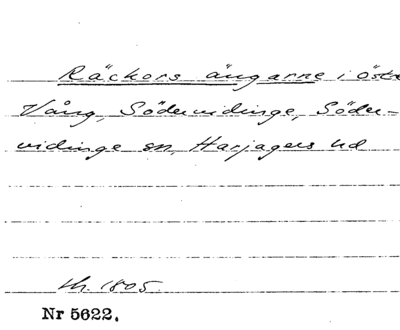 Räckors ängarne i Östra
Vång, Södervidinge, Söder-
vidinge sn, Harjagers hd
th. 1805.
Nr 5622.